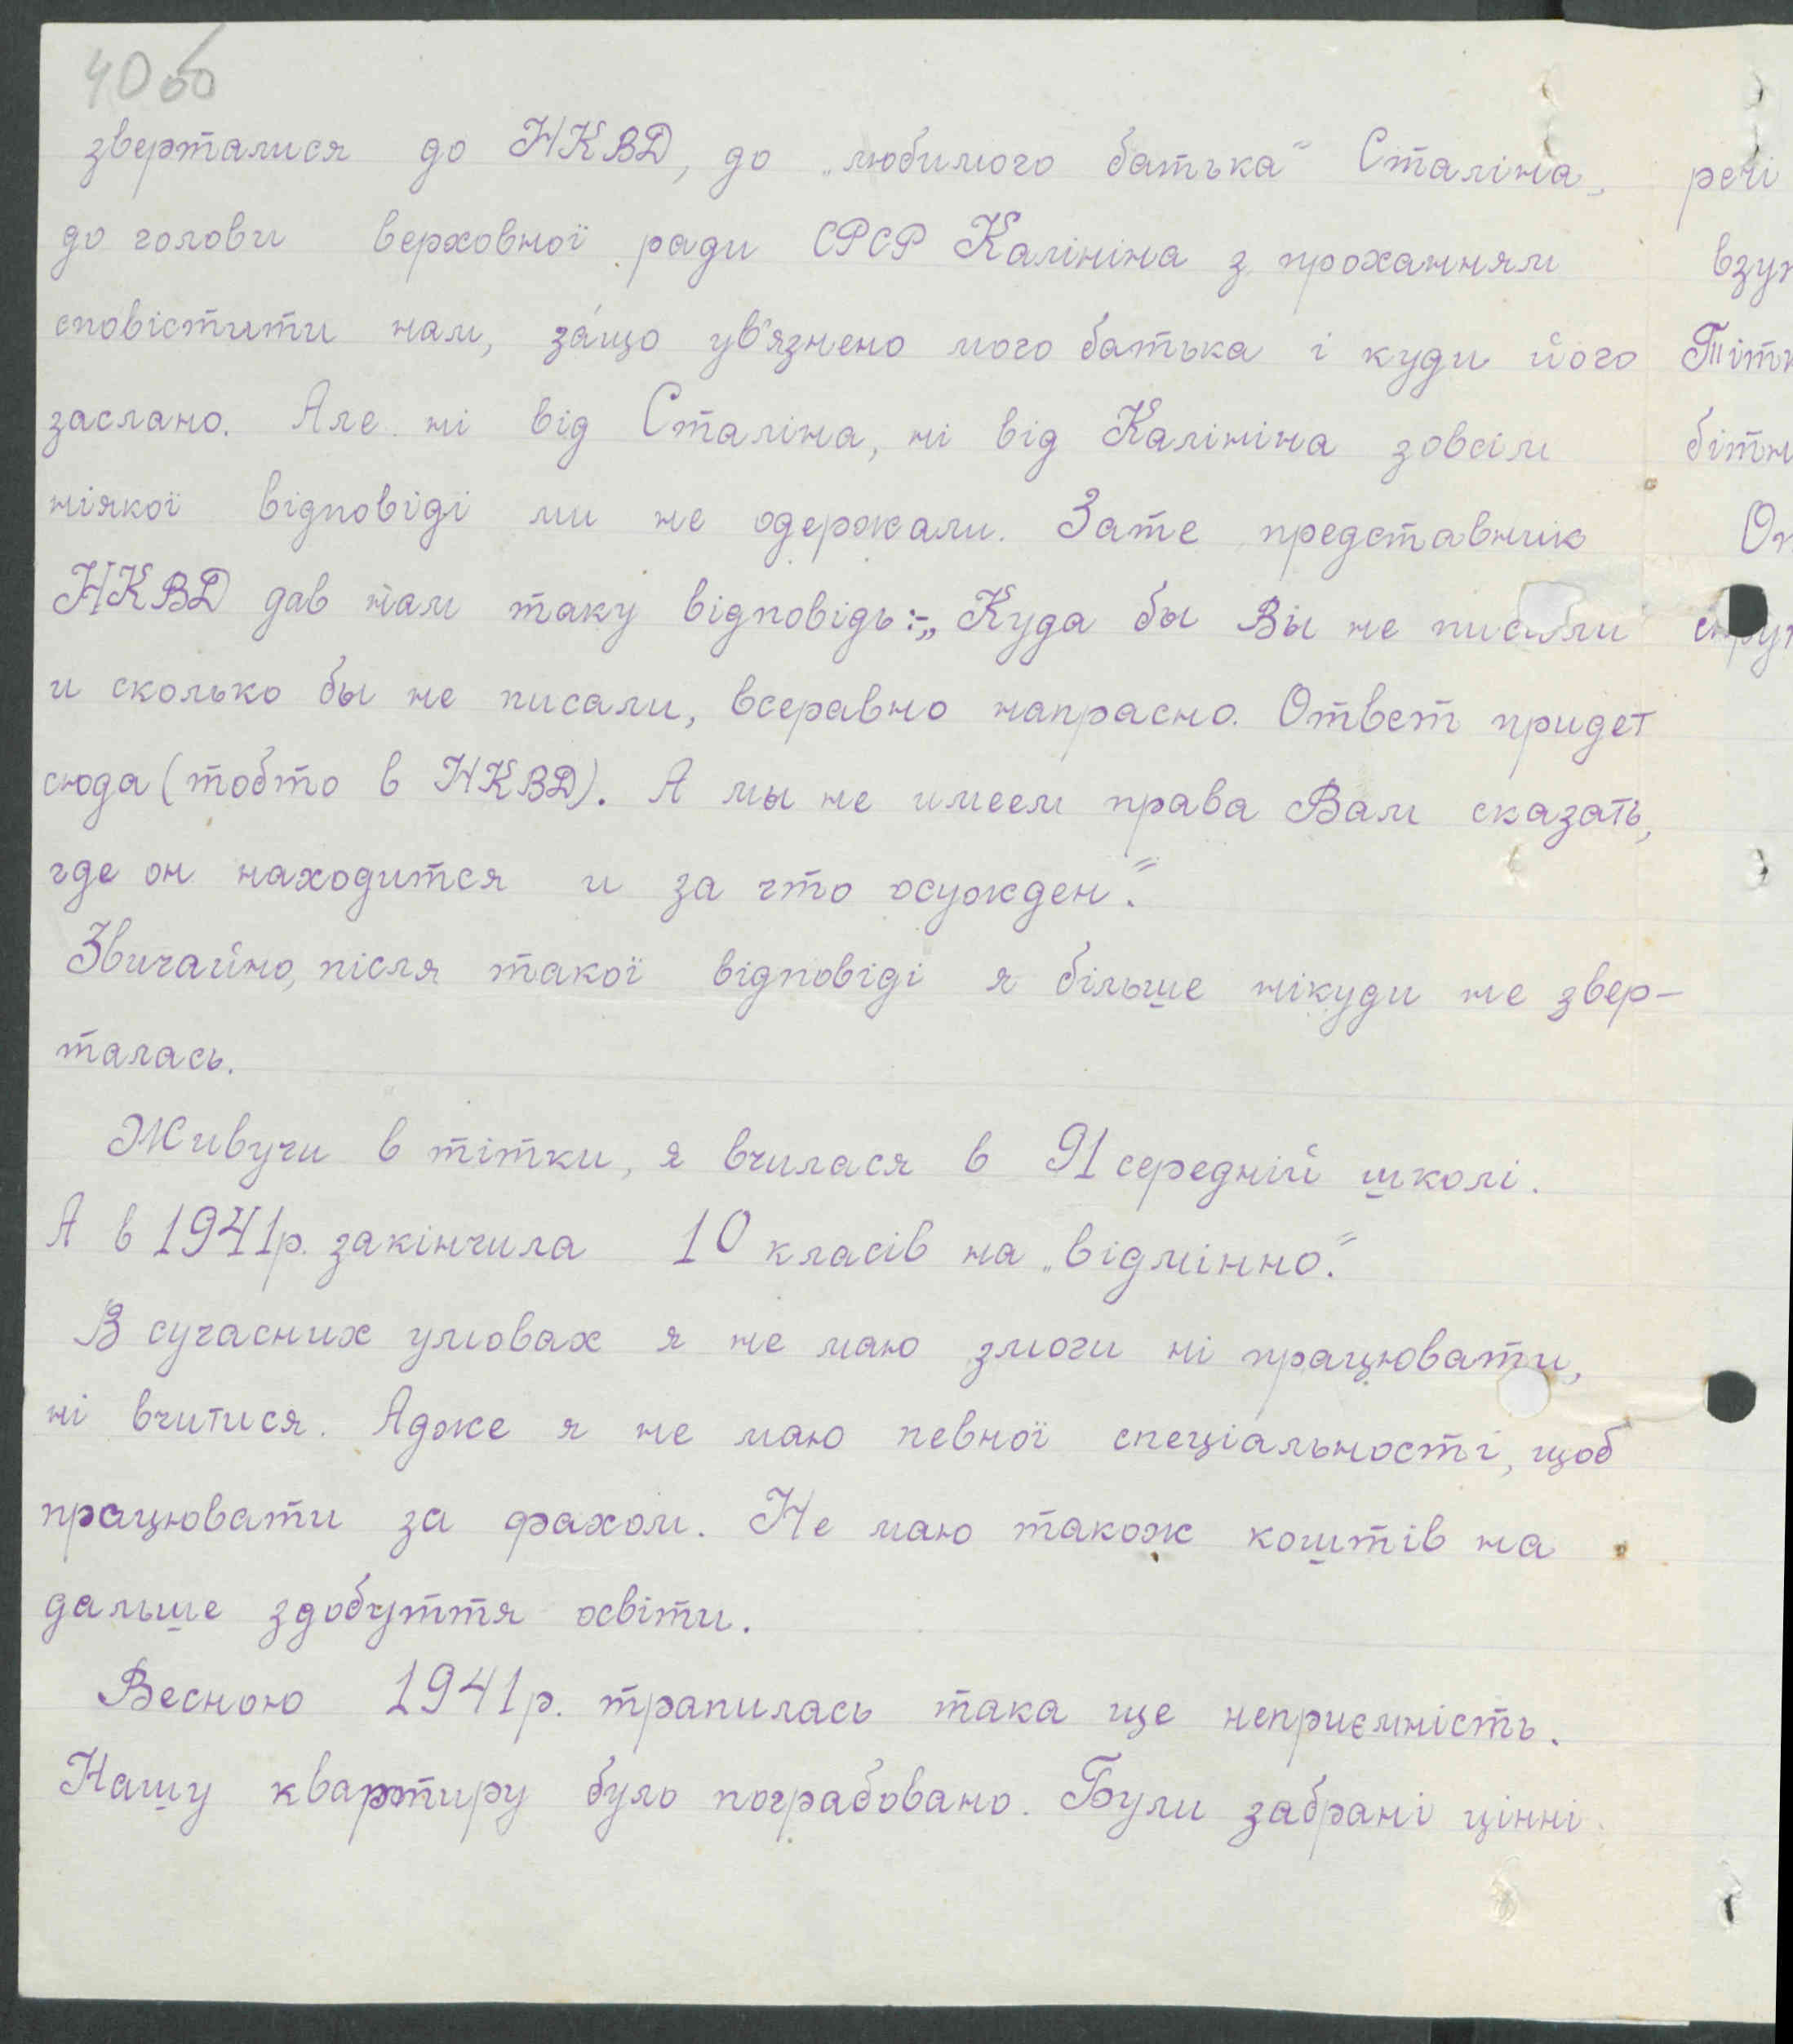 40об
зверталися до НКВД, до „любимого батька“ Сталіна,
до голови верховної ради СРСР Калініна з проханням
сповістити нам, за́що ув'язнено мого батька і куди його
заслано. Але ні від Сталіна, ні від Калініна зовсім
ніякої відповіді ми не одержали. Зате представник
НКВД дав нам таку відповідь:-„Куда бы Вы не писали
и сколько бы не писали, всеравно напрасно. Ответ придет
сюда (тобто в НКВД). А мы не имеем права Вам сказать,
где он находится и за что осужден.“
Звичайно, після такої відповіді я більше нікуди не звер-
талась.
Живучи в тітки, я вчилася в 91 середній школі.
А в 1941р. закінчила 10 класів на „відмінно.“
В сучасних умовах я не маю змоги ні працювати,
ні вчитися. Адже я не маю певної спеціальності, щоб
працювати за фахом. Не маю також коштів на
дальше здобуття освіти.
Весною 1941р. трапилась така ще неприємність.
Нашу квартиру було пограбовано. Були забрані цінні
речі